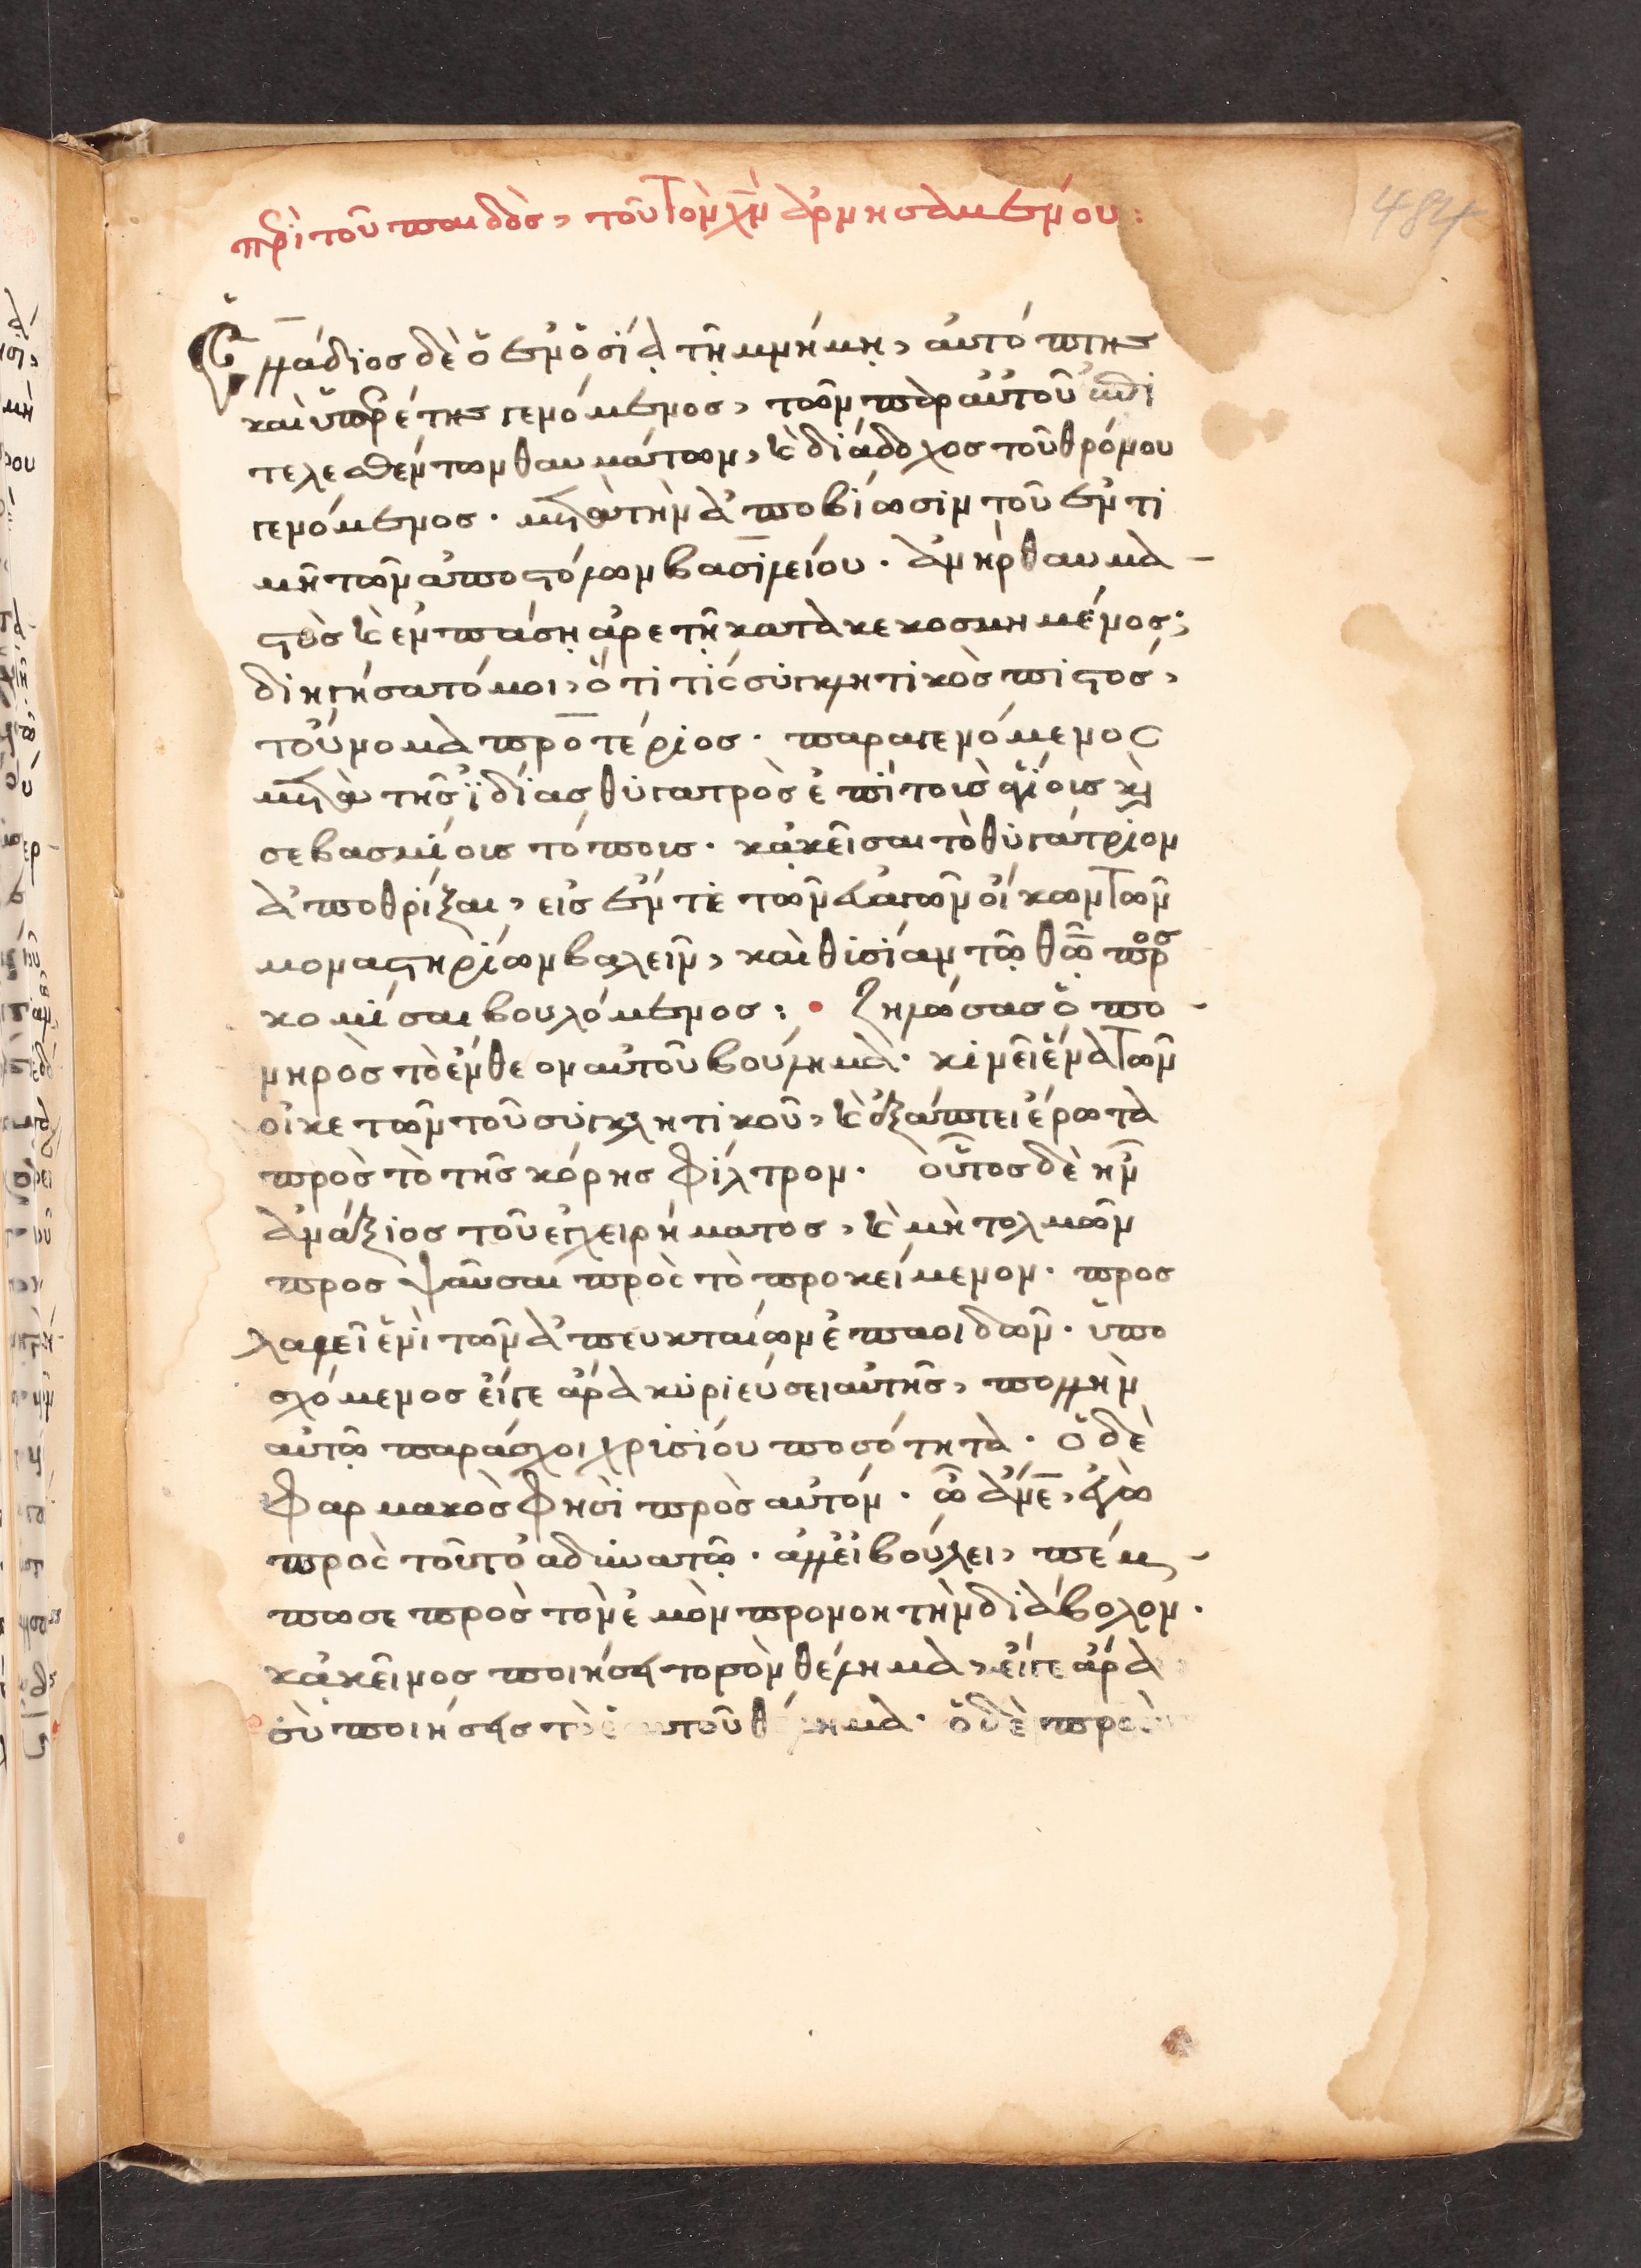 484
περὶ τοῦ παιδὸς, τοῦ τὸν χ̅ν̅ ἀρνησαμένου:
Ἑλλάδιος δὲ ὁ ἐν ὁσίᾳ τῇ μνήμῃ, αὐτόπτης
καὶ ὑπηρέτης γενόμενος, τῶν παρ αὐτοῦ ἐπι
τελεσθέντων θαυμάτων, κ̀ διάδοχος τοῦ θρόνου
γενόμενος. μετὰ τὴν ἀποβίωσιν τοῦ ἐν τι
μῆ τῶν ἀποστόλων βασιλείου. ἀνὴρ θαυμα-
στὸς κ̀ ἐν πάσῃ ἀρετῇ κατακεκοσμημένος;
διηγήσατό μοι, ὅτι τίς συγκλητικὸς πιστός,
τοὔνομα προτέριος. παραγενόμενος
μετὰ τῆς ἰδίας θυγατρὸς ἐπὶ τοῖς ἁγίοις κ̀
σεβασμίοις τόποις. κἀκεῖσαι τὸ θυγάτριον
ἀποθρίξαι, εἰς ἔν τε τῶν εὐαγῶν οἴκων τῶν
μοναστηρίων βαλεῖν, καὶ θισίαν τῷ θ̅ῷ προσ
κομίσαι βουλόμενος: ζηλώσας ὁ πο-
νηρὸς τὸ ἔνθεον αὐτοῦ βούλημα. κινεῖ ἕνα τῶν
οἰκετῶν τοῦ συγκλητικοῦ, κ̀ ἐξάπτει ἔρωτα
πρὸς τὸ τῆς κόρης φίλτρον. ὁὗτος δὲ ἦν
ἀνάξιος τοῦ εγχειρήματος, κ̀ μὴ τολμῶν
προσψαῦσαι πρὸς τὸ προκείμενον. προσ
λαλεῖ ἑνὶ τῶν ἀπευκταίων ἐπαοιδῶν. ὑπο
σχόμενος εἴγε ἄρα κυριεύσει αὐτῆς, πολλὴν
αὐτῷ παράσχοι χρισίου ποσότητα. ὁ δὲ
φαρμακὸς φησὶ πρὸς αὐτόν. ὦ ἄν̅ε̅, ἐγὼ
πρὸς τοῦτο ἀδυνατῶ. ἀλλ εἰ βούλει, πέμ-
πω σε πρὸς τὸν ἐμὸν προνοητὴν διάβολον.
κἀκεῖνος ποιήσει τὸ σὸν θέλημα, εἴγε ἄρα
σὺ ποιήσεις τὸ ἑαυτοῦ θέλημα. ὁ δὲ πρὸς